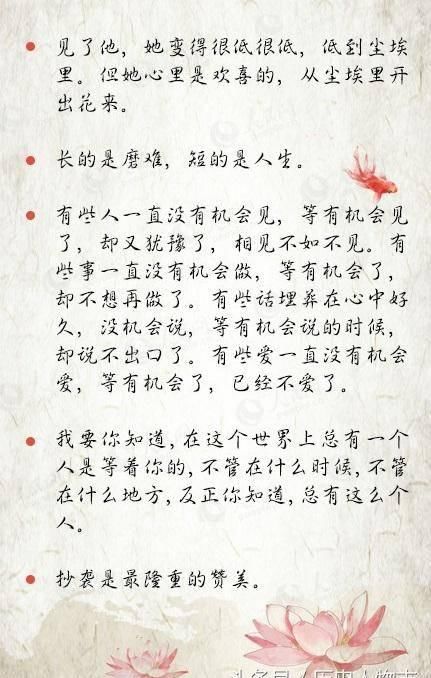 见了他，她变得很低很低，低到尘埃
里。但她心里是欢喜的，从尘埃里开
出花来。
长的是磨难，短的是人生。
有些人一直没有机会见，等有机会见
了，却又犹豫了，相见不如不见。有
些事一直没有机会做，等有机会了，
却不想再做了。有些话埋葬在心中好
久，没机会说，等有机会说的时候，
却说不出口了。有些爱一直没有机会
爱，等有机会了，已经不爱了。
我要你知道，在这个世界上总有一个
人是等着你的，不管在什么时候，不管
在什么地方，反正你知道，总有这么个
人。
抄袭是最隆重的赞美。